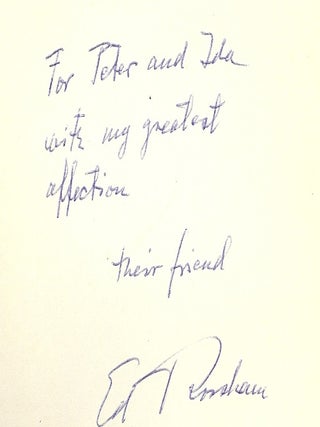 For Peter and Ida
with my greatest
affection
their friend
Ed